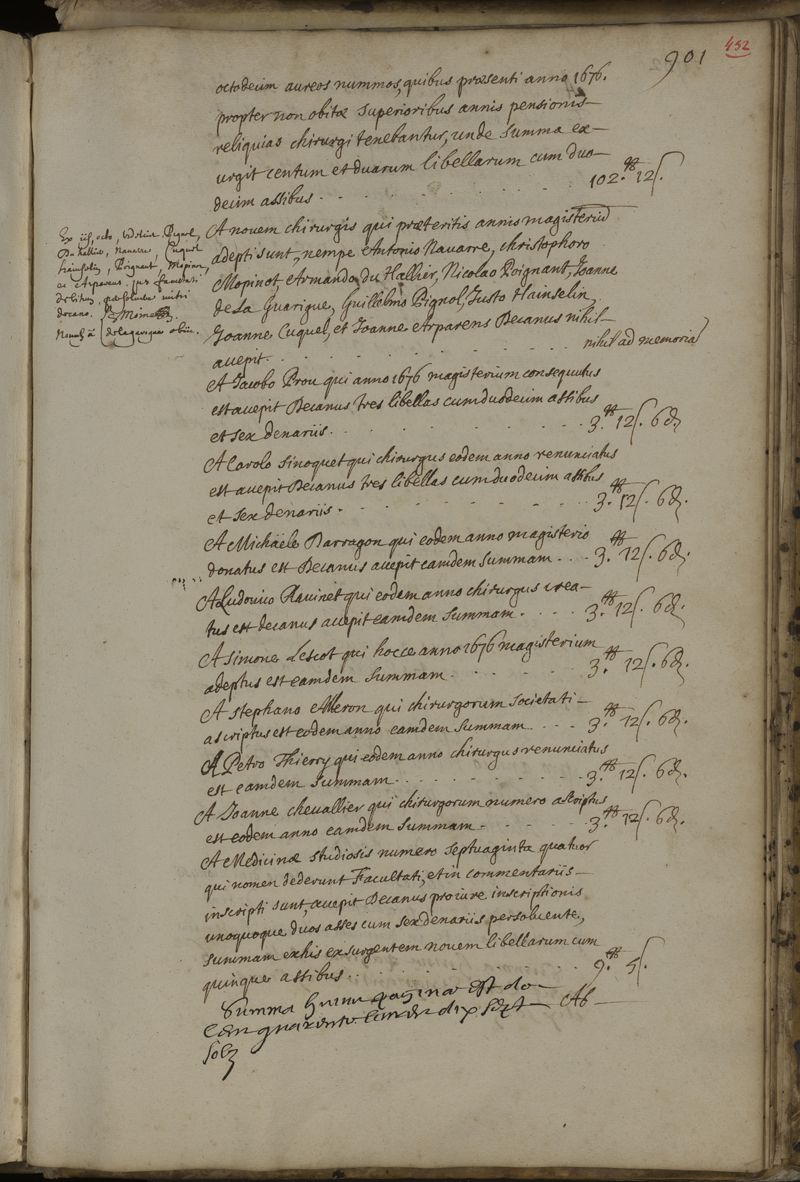 452
901
octodecim aureos nummos, quibus præsenti anno 1676.
propter non obitæ superioribus annis pensionis
reliquias chirurgi tenebantur, unde summa ex-
urgit centum et duarum libellarum cum duo-
decim assibus . . . . . . . . 102.tt 12ſ.
A novem chirurgis qui præteritis annis magisterium
adepti sunt, nempe Antonio Navarre, christophoro
Mopinot, Armando du Hallier, Nicolao Poignant, Joanne
de La Guarigue, Guillelmo Pignol, Justo Hainselin,
Joanne Cuquel, et Joanne Arparens Decanus nihil
accepit . . . . . . . . nihil ad memoria
Ex iis, octo, Pignol,
Du hallier, navarre, Cuquel
hainselin, Poignant, Mopinot,
ac Arparens
debitum, mihi
decano. Le Moine
de la garigue obiit.
A Jacobo Prou qui anno 1676 magisterium consequutus
est accepit Decanus tres libellas cum duodecim assibus
et sex denariis . . . . . . . . 3.tt 12ſ. 6d.
A Carolo Sinoquet qui chirurgus eodem anno renunciatus
est accepit Decanus tres libellas cum duodecim assibus
et sex denariis . . . . . . . . 3.tt 12ſ. 6d.
A Michäele Darragon qui eodem anno magisterio
donatus est Decanus accepit eamdem summam . . . 3.tt 12ſ. 6d.
A Ludovico Ravinet qui eodem anno chirurgus crea-
tus est decanus accepit eamdem summam . . . . 3.tt 12ſ. 6d.
A Simone Lescot qui hocce anno 1676 magisterium
adeptus est eamdem summam . . . . . . 3.tt 12ſ. 6d.
A stephano Meron qui chirurgorum societati
ascriptus est eodem anno eamdem summam . . . 3.tt 12ſ. 6d.
A Petro Thierry qui eodem anno chirurgus renunciatus
est eamdem summam . . . . . . . . 3.tt 12ſ. 6d.
A Joanne chevallier qui chirurgorum numero ascriptus
est eodem anno eamdem summam . . . . . 3.tt 12ſ. 6d.
A Medicinæ studiosis numero septuaginta quatuor
qui nomen dederunt Facultati, et in commentariis
inscripti sunt, accepit Decanus pro iure inscriptionis
unoquoque duos asses cum sex denariis persolvente,
summam ex his exsurgentem novem libellarum cum
quinque assibus . . . . . . . . 9.tt 5ſ.
Summa huius paginæ est de
Cent quarante livres dix sept
solz